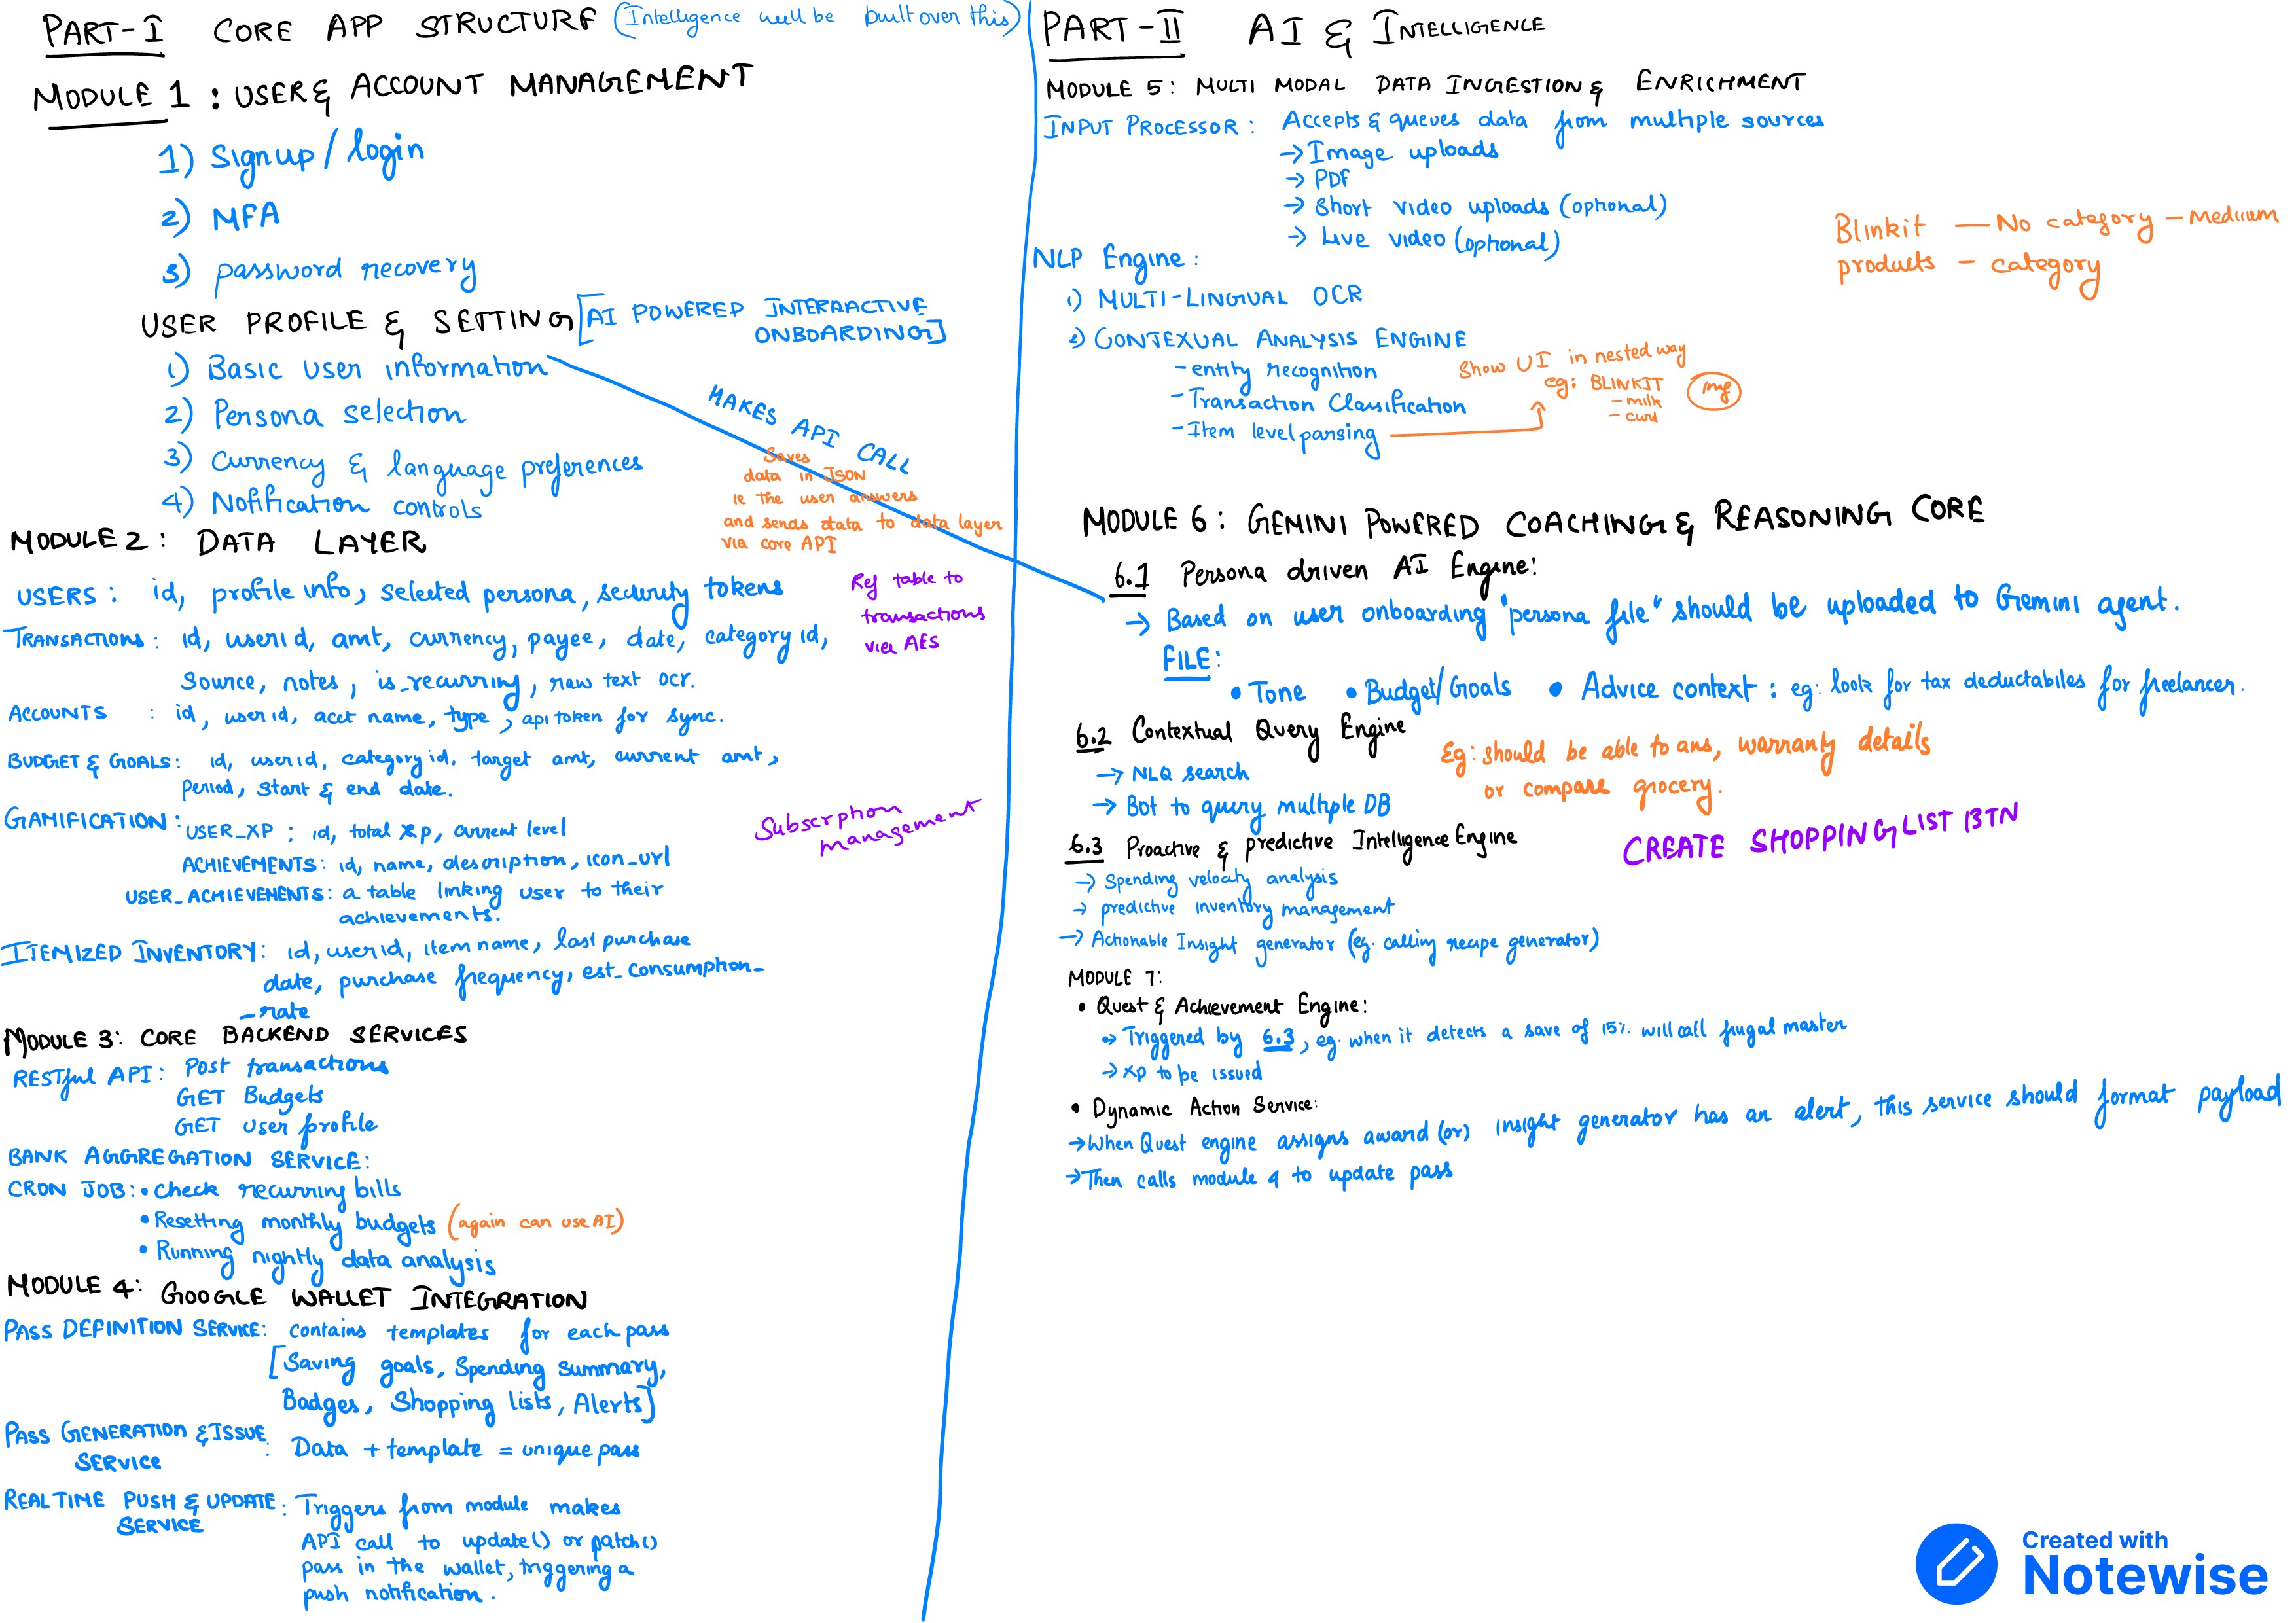 PART-I CORE APP STRUCTURE (Intelligence will be built over this)
MODULE 1 : USER & ACCOUNT MANAGEMENT
1) Signup / login
2) MFA
3) password recovery
USER PROFILE & SETTING [AI POWERED INTERAACTIVE
ONBOARDING]
1) Basic user information
2) Persona selection
3) Currency & language preferences
4) Notification controls
MAKES API CALL
Saves
data in JSON
ie the user answers
and sends data to data layer
via core API
MODULE 2 : DATA LAYER
USERS : id, profile info, selected persona, security tokens
TRANSACTIONS : id, user id, amt, currency, payee, date, category id,
Source, notes, is_recurring, raw text ocr.
Ref table to
transactions
via AES
ACCOUNTS : id, user id, acct name, type, api token for sync.
BUDGET & GOALS : id, user id, category id, target amt, current amt,
period, start & end date.
GAMIFICATION : USER_XP : id, total xp, current level
ACHIEVEMENTS : id, name, description, icon_url
USER_ACHIEVEMENTS : a table linking user to their
achievements.
Subscrption
management
ITEMIZED INVENTORY : id, user id, item name, last purchase
date, purchase frequency, est_consumption_
_rate
MODULE 3: CORE BACKEND SERVICES
RESTful API : Post transactions
GET Budgets
GET user profile
BANK AGGREGATION SERVICE :
CRON JOB : • check recurring bills
• Resetting monthly budgets (again can use AI)
• Running nightly data analysis
MODULE 4: GOOGLE WALLET INTEGRATION
PASS DEFINITION SERVICE : contains templates for each pass
[Saving goals, Spending summary,
Badges, Shopping lists, Alerts]
PASS GENERATION & ISSUE
SERVICE : Data + template = unique pass
REAL TIME PUSH & UPDATE
SERVICE : Triggers from module makes
API call to update() or patch()
pass in the wallet, triggering a
push notification.
PART-II AI & INTELLIGENCE
MODULE 5: MULTI MODAL DATA INGESTION & ENRICHMENT
INPUT PROCESSOR : Accepts & queues data from multiple sources
→ Image uploads
→ PDF
→ Short video uploads (optional)
→ Live video (optional)
Blinkit — No category — Medium
products — category
NLP Engine :
1) MULTI-LINGUAL OCR
2) CONTEXUAL ANALYSIS ENGINE
- entity recognition
- Transaction Classification
- Item level parsing
Show UI in nested way
eg: BLINKIT
- milk
- curd
img
MODULE 6: GEMINI POWERED COACHING & REASONING CORE
6.1 Persona driven AI Engine:
→ Based on user onboarding "persona file" should be uploaded to Gemini agent.
FILE:
• Tone • Budget/Goals • Advice context : eg: look for tax deductabiles for freelancer.
6.2 Contextual Query Engine
→ NLQ search
→ Bot to query multiple DB
Eg: should be able to ans, warranty details
or compare grocery.
6.3 Proactive & predictive Intelligence Engine
→ Spending velocity analysis
→ predictive inventory management
→ Actionable Insight generator (eg. calling recipe generator)
CREATE SHOPPING LIST BTN
MODULE 7:
• Quest & Achievement Engine:
→ Triggered by 6.3, eg. when it detects a save of 15% will call frugal master
→ xp to be issued
• Dynamic Action Service:
→ When Quest engine assigns award (or) insight generator has an alert, this service should format payload
→ Then calls module 4 to update pass
Created with
Notewise